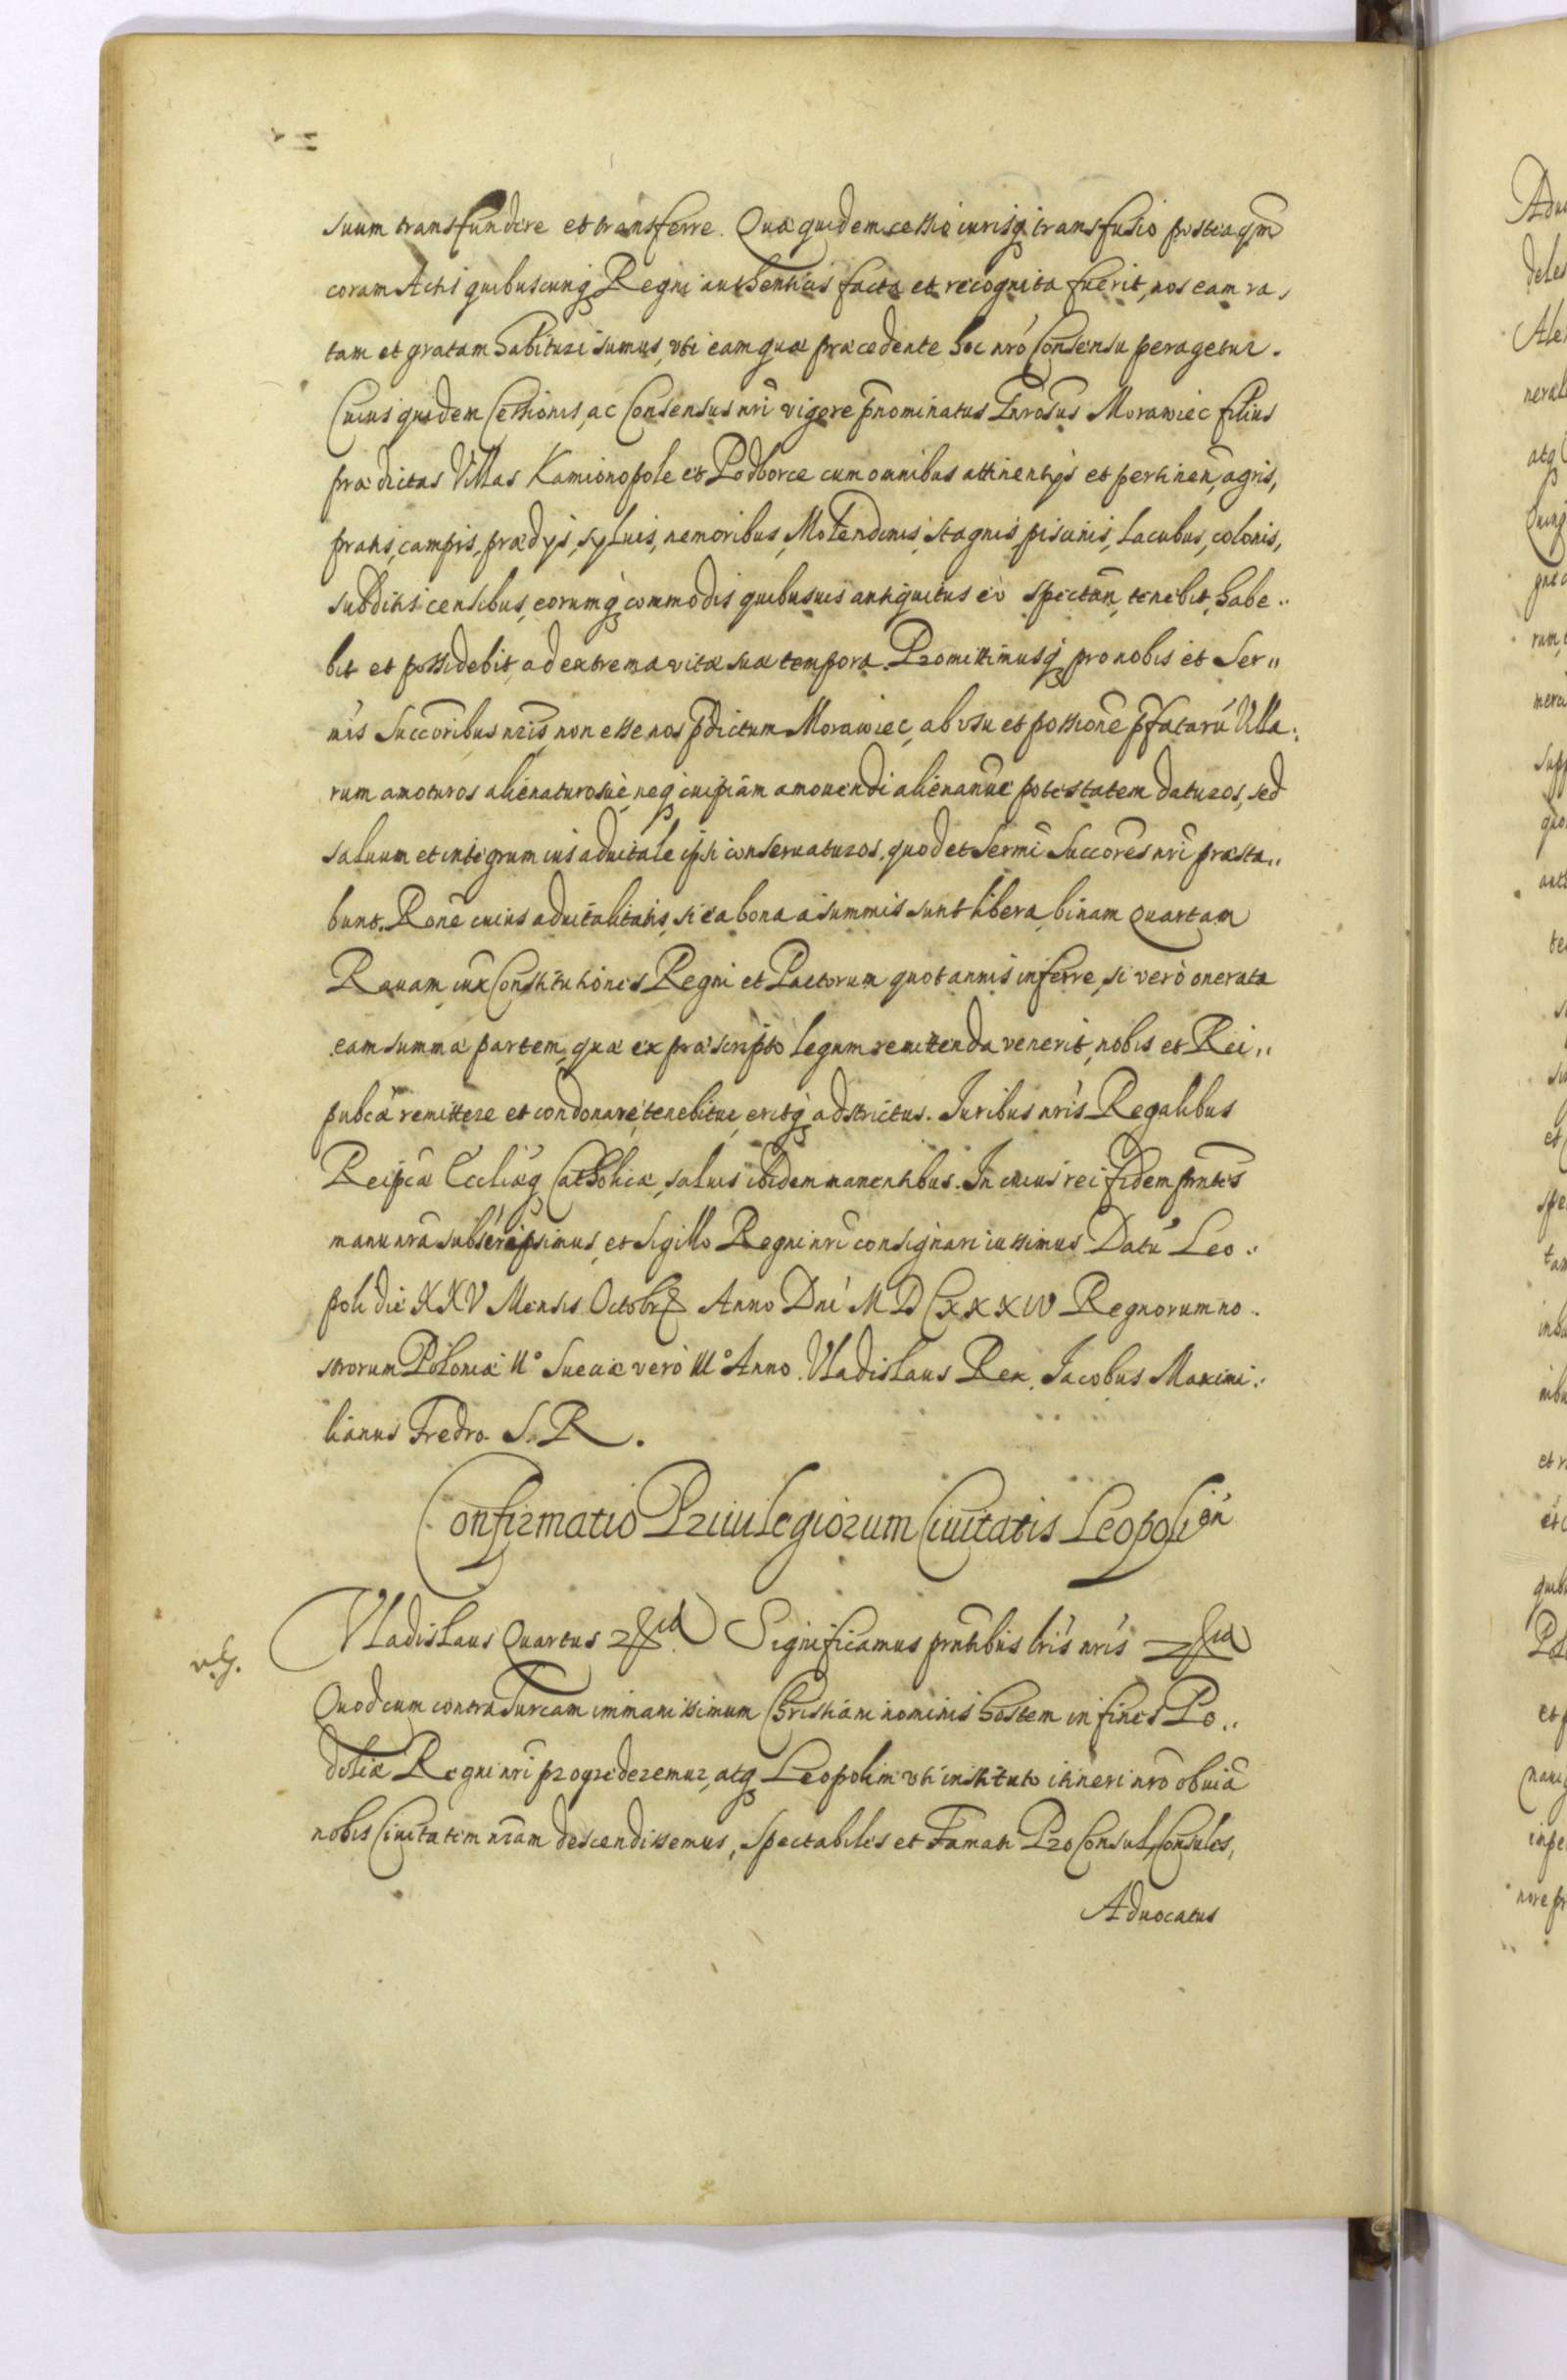 suum transfundere et transferre. Quæ quidem cessio iurisq transfusio posteaqm̃
coram Actis quibuscunq Regni authenticis facta et recognita fuerit, nos eam ra,
tam et gratam habituri sumus, vti eam quæ præcedente hoc nr̃o Consensu peragetur.
Cuius quidem Cessionis, ac Consensus nr̃i vigore p̃nominatus Gnrosus Morawiec filius
prædictas Villas Kamionopole et Podborce cum omnibus attinentijs et pertinen, agris,
pratis, campis, prædijs, syluis, nemoribus, Molendinis, stagnis, piscinis, Lacubus, colonis,
subditis censibus, eorumq commodis quibusuis antiquitus eò spectan̄, tenebit, habe„
bit et possidebit, ad extrema vitæ suæ tempora. Promittimusq pro nobis et Ser„
mis Succoribus nr̃is, non esse nos p̃dictum Morawiec, ab vsu et possione p̃fatarũ Villa„
rum amoturos alienaturosuè, neq cuipiam amouendi alienan̄ue potestatem daturos, sed
saluum et integrum ius aduitale ipsi conseruaturos, quod et Sermi Succores nr̃i præsta„
bunt. Rone cuius aduitalitatis, si ea bona a summis sunt libera, binam Quartam
Rauam, iux Constitutiones Regni et Pactorum quotannis inferre, si verò onerata
eam summæ partem, quæ ex præscripto Legum remittenda venerit, nobis et Rei„
pubcæ remittere et condonare, tenebitur, eritq adstrictus. Iuribus nr̃is Regalibus
Reipcæ Eccliæq Catholicæ, saluis ibidem manentibus. In cuius rei fidem prntes
manu nr̃a subscripsimus, et Sigillo Regni nr̃i consignari iussimus. Datũ Leo„
poli die XXV Mensis Octobr Anno Dni M D C XXXIV Regnorum no„
strorum Poloniæ II° Sueciæ verò III° Anno. Vladislaus Rex. Jacobus Maximi„
lianus Fredro S. R.
Confirmatio Priuilegiorum Ciuitatis Leopolien̄
Vladislaus Quartus Significamus prntibus lris nr̃is
Quod cum contra Turcam immanissimum Christiani nominis hostem in fines Po„
doliæ Regni nr̃i progrederemur, atq Leopolim vti instituto itineri nr̃o obuiã
nobis Ciuitatem nr̃am descendissemus, Spectabiles et Famati ProConsul, Consules,
Aduocatus